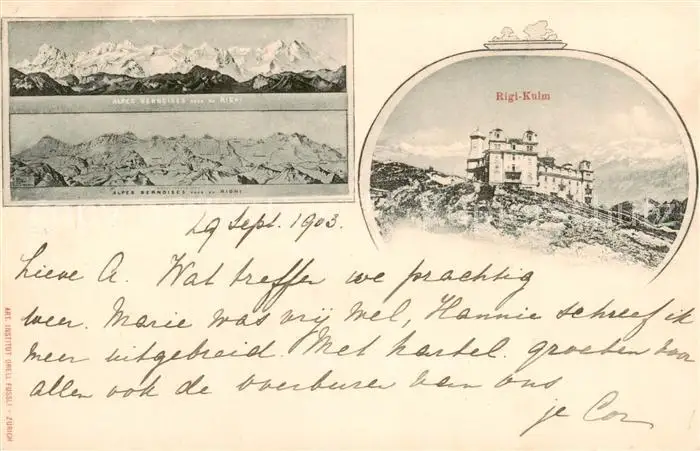 ALPES BERNOISES vues du RIGHI
ALPES BERNOISES vues du RIGHI
Rigi-Kulm
29 Sept. 1903.
Lieve A. Wat treffen we prachtig
weer. Marie was vrij wel, Hannie schreef ik
meer uitgebreid. Met hartel. groeten voor
allen ook de overburen van ons
je Cor
ART. INSTITUT ORELL FÜSSLI - ZÜRICH